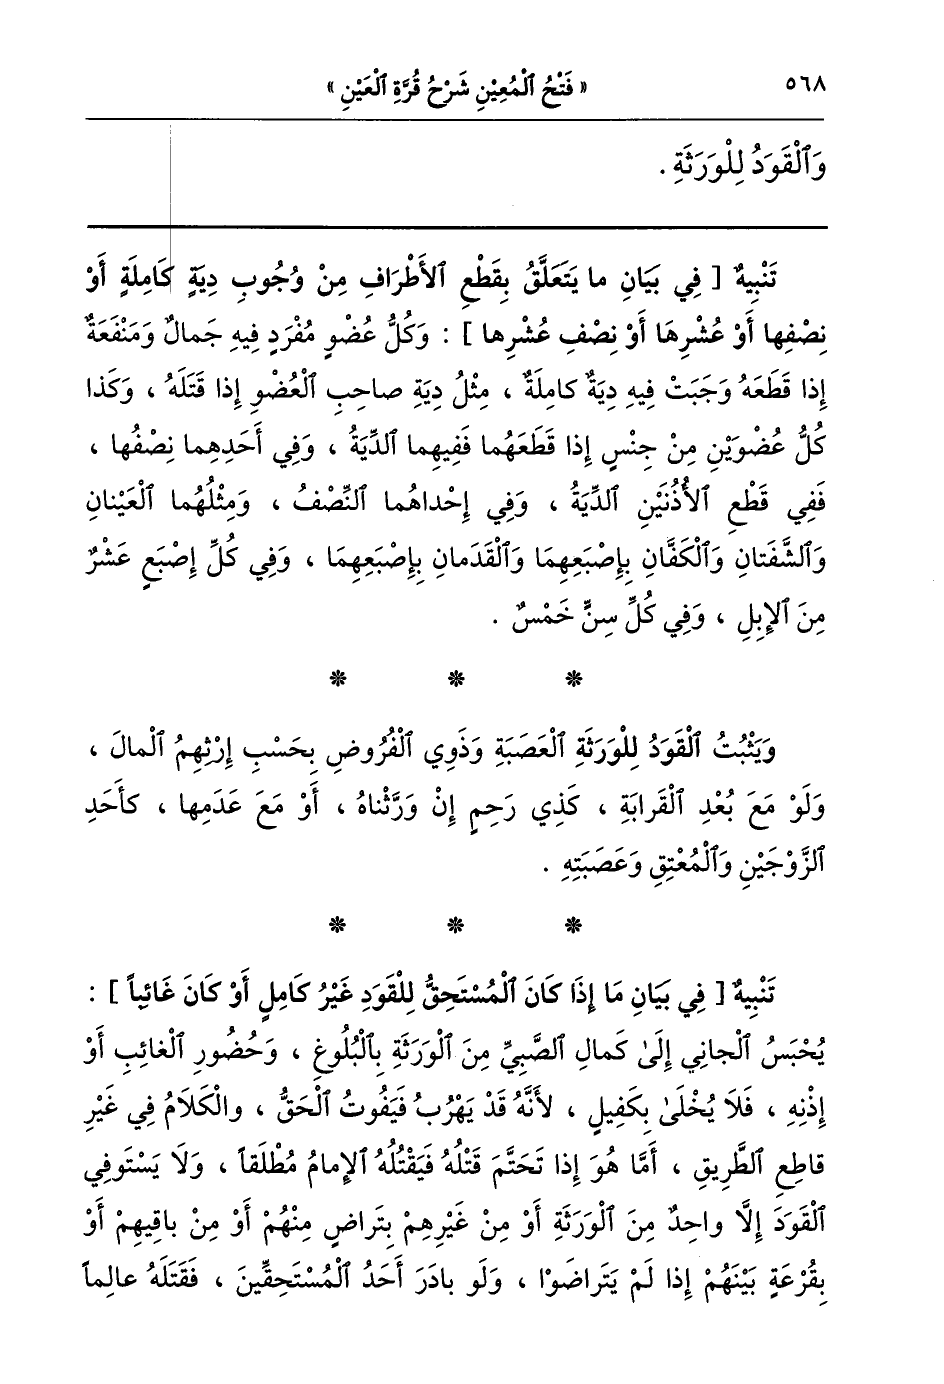 ٥٦٨
« فَتْحُ ٱلْمُعِيْنِ شَرْحُ قُرَّةِ ٱلْعَيْنِ »
وَٱلْقَوَدُ لِلْوَرَثَةِ .
تَنْبِيهٌ [ فِي بَيَانِ ما يَتَعَلَّقُ بِقَطْعِ ٱلأَطْرَافِ مِنْ وُجُوبِ دِيَةٍ كَامِلَةٍ أَوْ
نِصْفِها أَوْ عُشْرِهَا أَوْ نِصْفِ عُشْرِها ] : وَكُلُّ عُضْوٍ مُفْرَدٍ فِيهِ جَمالٌ وَمَنْفَعَةٌ
إِذا قَطَعَهُ وَجَبَتْ فِيهِ دِيَةٌ كامِلَةٌ ، مِثْلُ دِيَةِ صاحِبِ ٱلْعُضْوِ إِذا قَتَلَهُ ، وَكَذا
كُلُّ عُضْوَيْنِ مِنْ جِنْسٍ إِذا قَطَعَهُما فَفِيهِما ٱلدِّيَةُ ، وَفِي أَحَدِهِما نِصْفُها ،
فَفِي قَطْعِ ٱلأُذُنَيْنِ ٱلدِّيَةُ ، وَفِي إِحْداهُما ٱلنِّصْفُ ، وَمِثْلُهُما ٱلْعَيْنانِ
وَٱلشَّفَتانِ وَٱلْكَفَّانِ بِإِصْبَعِهِمَا وَٱلْقَدَمانِ بِإِصْبَعِهِمَا ، وَفِي كُلِّ إِصْبَعٍ عَشْرٌ
مِنَ ٱلإِبِلِ ، وَفِي كُلِّ سِنٍّ خَمْسٌ .
* * *
وَيَثْبُتُ ٱلْقَوَدُ لِلْوَرَثَةِ ٱلْعَصَبَةِ وَذَوِي ٱلْفُرُوضِ بِحَسْبِ إِرْثِهِمُ ٱلْمالَ ،
وَلَوْ مَعَ بُعْدِ ٱلْقَرابَةِ ، كَذِي رَحِمٍ إِنْ وَرَّثْناهُ ، أَوْ مَعَ عَدَمِها ، كأَحَدِ
ٱلزَّوْجَيْنِ وَٱلْمُعْتِقِ وَعَصَبَتِهِ .
* * *
تَنْبِيهٌ [ فِي بَيَانِ مَا إِذَا كَانَ ٱلْمُسْتَحِقُّ لِلْقَوَدِ غَيْرُ كَامِلٍ أَوْ كَانَ غَائِباً ] :
يُحْبَسُ ٱلْجانِي إِلَىٰ كَمالِ ٱلصَّبِيِّ مِنَ ٱلْوَرَثَةِ بِٱلْبُلُوغِ ، وَحُضُورِ ٱلْغائِبِ أَوْ
إِذْنِهِ ، فَلَا يُخْلَىٰ بِكَفِيلٍ ، لأَنَّهُ قَدْ يَهْرُبُ فَيَفُوتُ ٱلْحَقُّ ، والْكَلَامُ فِي غَيْرِ
قاطِعِ ٱلطَّرِيقِ ، أَمَّا هُوَ إِذا تَحَتَّمَ قَتْلُهُ فَيَقْتُلُهُ ٱلإِمامُ مُطْلَقاً ، وَلَا يَسْتَوفِي
ٱلْقَوَدَ إِلَّا واحِدٌ مِنَ ٱلْوَرَثَةِ أَوْ مِنْ غَيْرِهِمْ بِتَراضٍ مِنْهُمْ أَوْ مِنْ باقِيهِمْ أَوْ
بِقُرْعَةٍ بَيْنَهُمْ إِذا لَمْ يَتَراضَوْا ، وَلَو بادَرَ أَحَدُ ٱلْمُسْتَحِقِّينَ ، فَقَتَلَهُ عالِماً